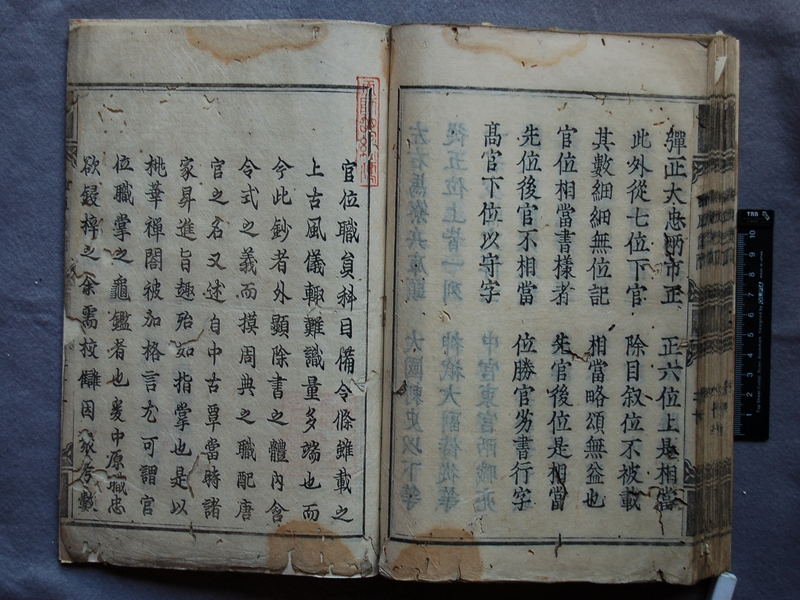 彈正大忠兩市正　正六位上是相當
此外從七位下官　除目叙位不被載
其數細細無位記　相當略頌無益也
官位相當書樣者　先官後位是相當
先位後官不相當　位勝官劣書行字
高官下位以守字
官位職員科目備令條雖載之
上古風儀輙難識量多端也而
今此鈔者外顯除書之體內含
令式之義而摸周典之職配唐
官之名又述自中古覃當時諸
家昇進旨趣殆如指掌也是以
桃華禪閤被加格言尤可謂官
位職掌之龜鑑者也爰中原職忠
欲鋟梓之余需挍讎因